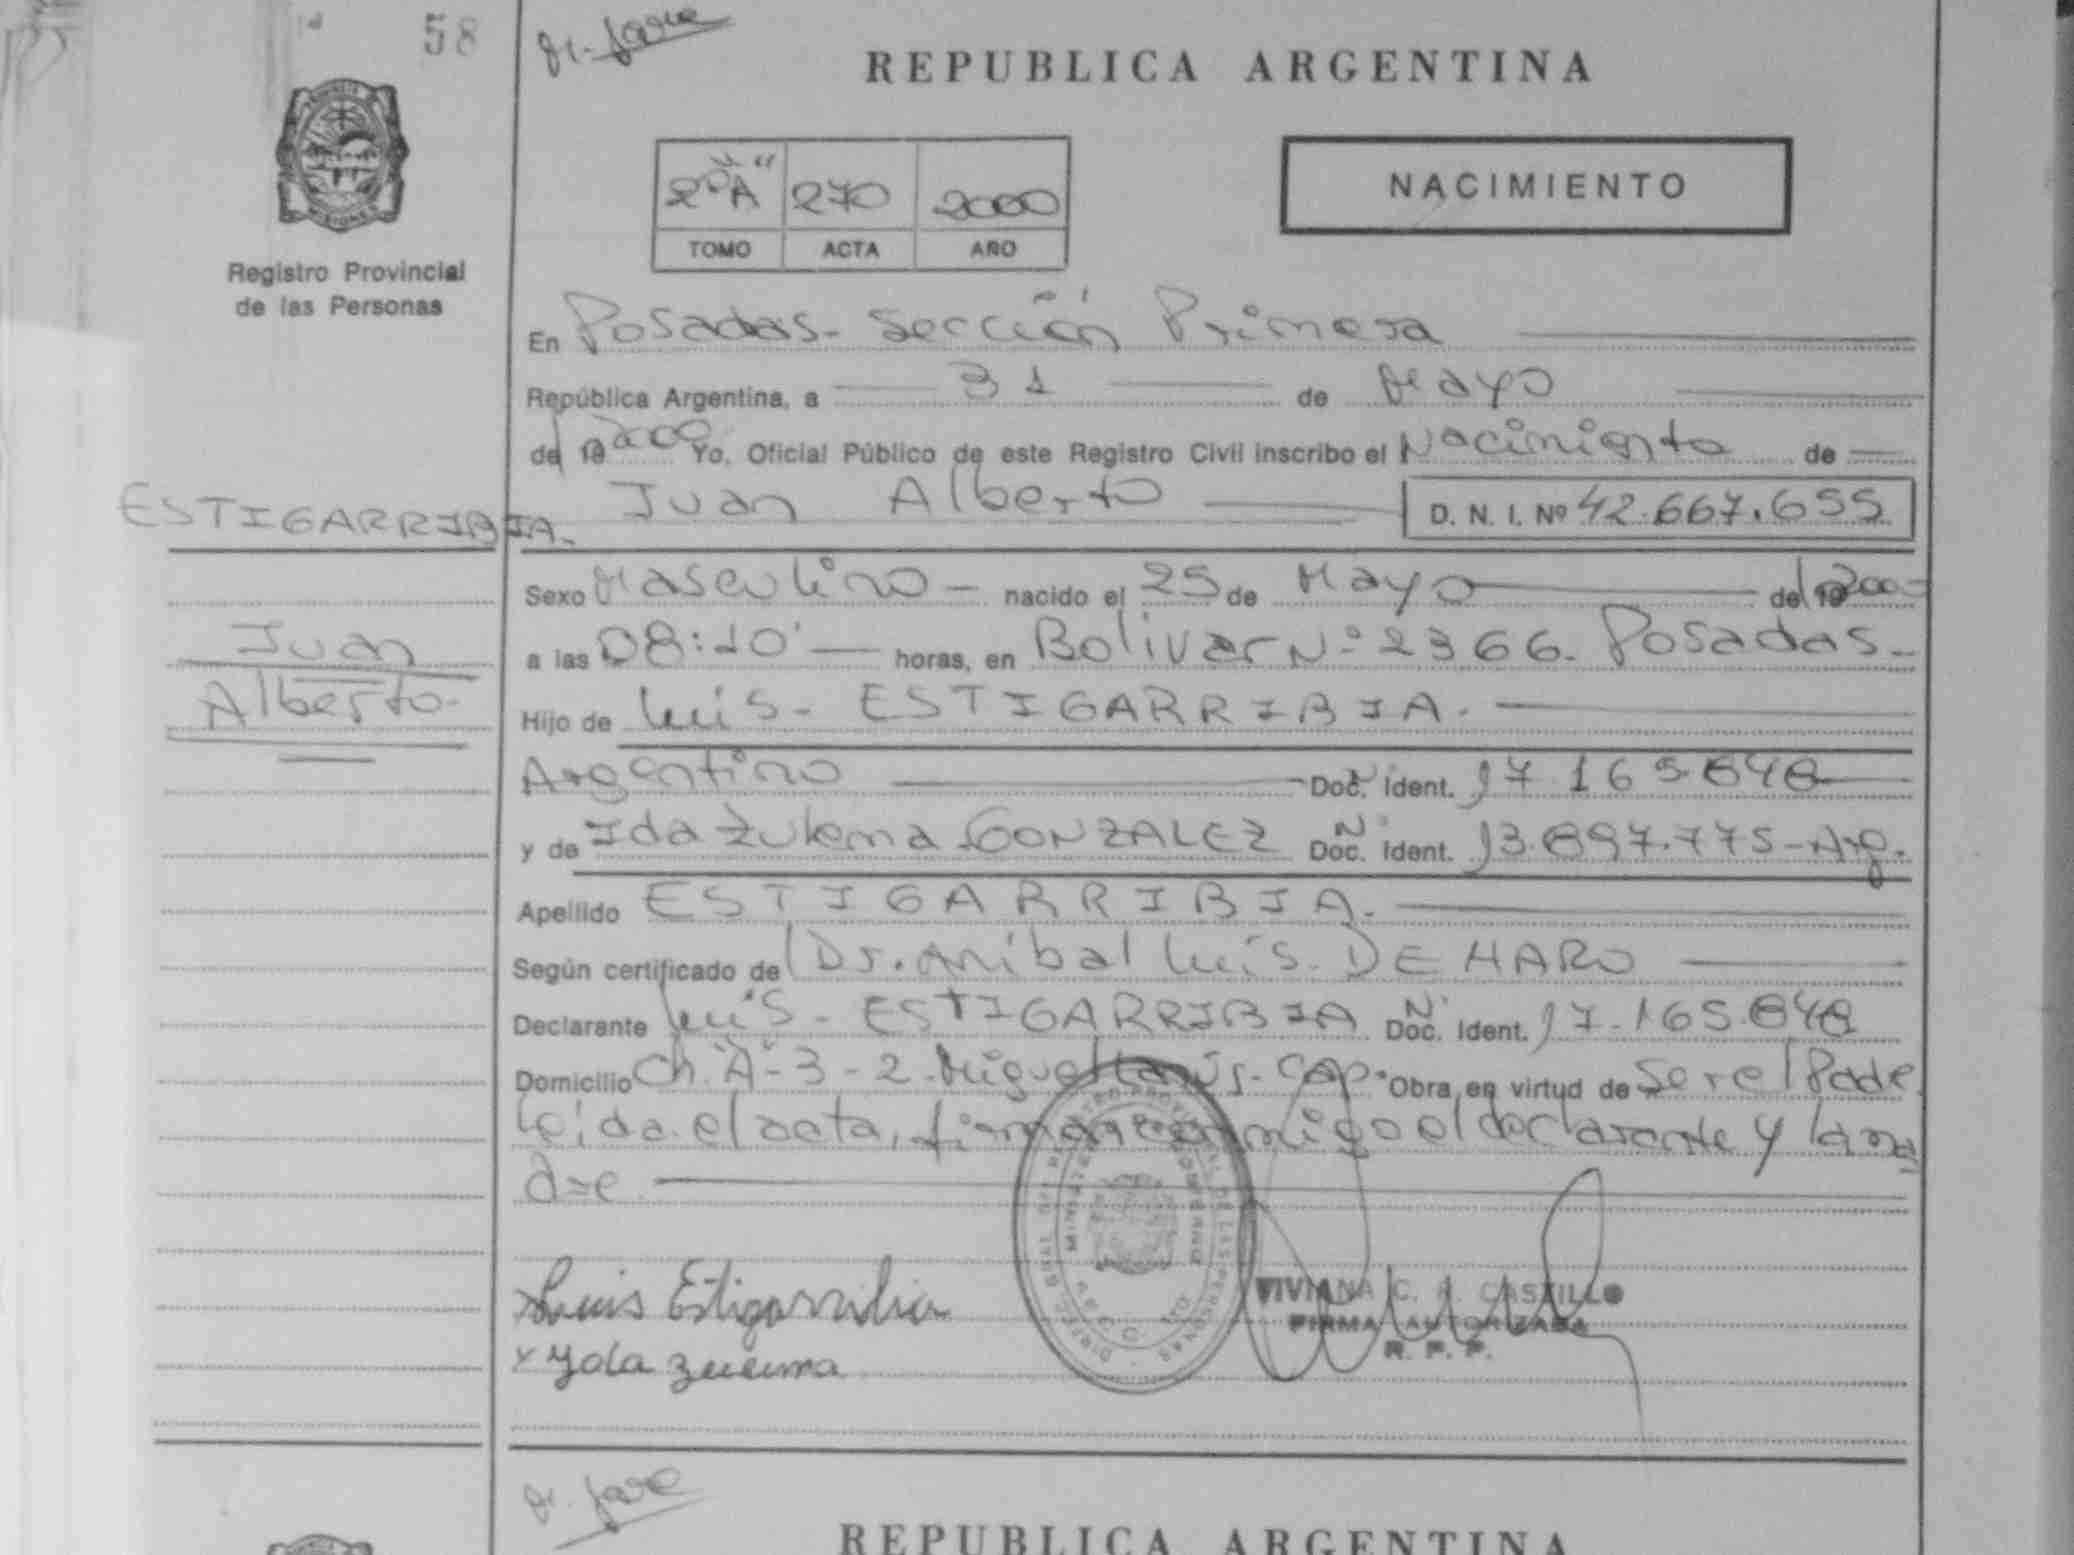 58
REPUBLICA ARGENTINA
2º "A" 270 2000
TOMO ACTA AÑO
NACIMIENTO
Registro Provincial
de las Personas
En Posadas - Sección Primera
República Argentina, a 31 de Mayo
de 19 2000 Yo. Oficial Público de este Registro Civil inscribo el Nacimiento de
ESTIGARRIBIA.
Juan Alberto D. N. I. Nº 42.667.655
Sexo Masculino - nacido el 25 de Mayo de 19 2000
Juan
Alberto-
a las 08:10' horas, en Bolivar Nº 2366. Posadas-
Hijo de Luis - ESTIGARRIBIA.
Argentino Doc. Nº Ident. 17.165.848
y de Ida Zulema GONZALEZ Doc. Nº Ident. 13.897.775 - Arg.
Apellido ESTIGARRIBIA.
Según certificado de Dr. Anibal Luis. DE HARO
Declarante Luis - ESTIGARRIBIA Doc. Nº Ident. 17.165.848
Domicilio Ch. "A" - 3 - 2 - Miguel Lanús - CAP. Obra en virtud de Ser el Padre
leída el acta, firman conmigo el declarante y la ma
dre
Luis Estigarribia
VIVIANA C. A. CASTILLO
FIRMA AUTORIZADA
R. P. P.
x Yda Zulema
REPUBLICA ARGENTINA